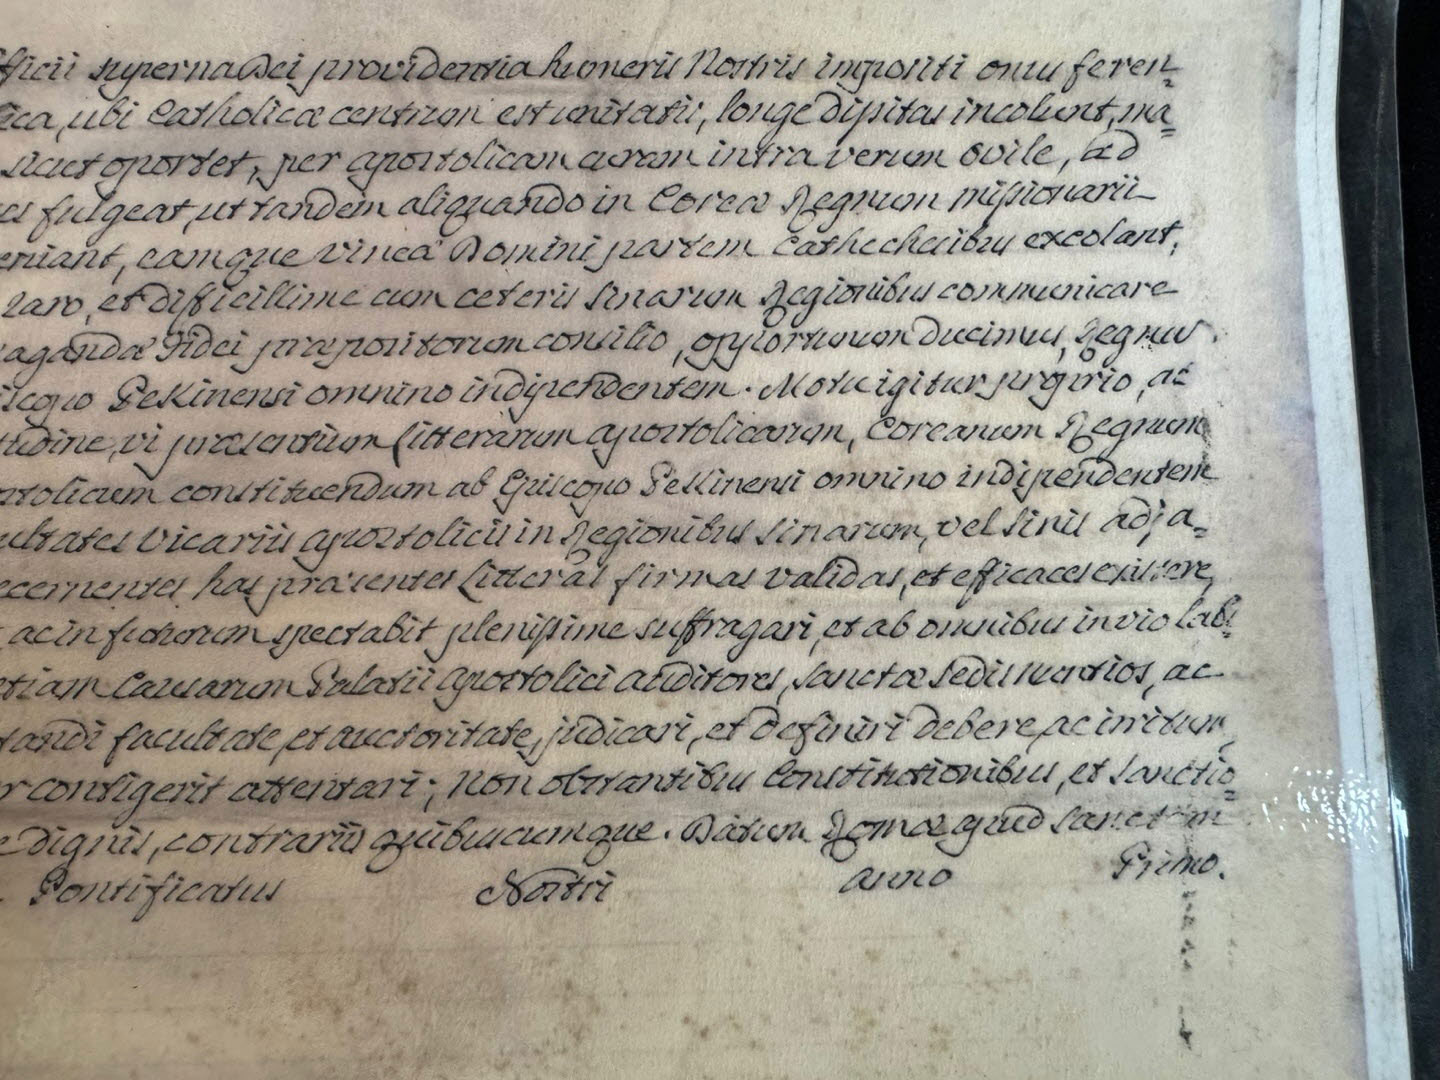 fficii superna Dei providentia humeris Nostris impositi onus feren=
ica, ubi Catholicæ centrum est unitatis, longe dissitas incolunt, ma=
sicut oportet, per apostolicam curam intra verum Ovile, ad
es fulgeat, ut tandem aliquando in Coreæ Regnum missionarii
eniant, eamque vineæ Domini partem Cathechesibus excolant,
raro, et difficillime cum ceteris Sinarum Regionibus communicare
agandæ Fidei præpositorum consilio, opportunum ducimus, Regnu
iscopo Pekinensi omnino indipendentem. Motu igitur proprio, ac
tudine, vi præsentium Litterarum apostolicarum, Coreanum Regnum
stolicum constituendum ab Episcopo Pekinensi omnino indipendentem
ultates Vicariis apostolicis in Regionibus Sinarum, vel Sinis adja=
ecernentes has præsentes Litteras firmas validas, et efficaces existere,
ac in futurum spectabit plenissime suffragari, et ab omnibus inviolabi=
etiam Causarum Palatii Apostolici auditores, Sanctæ Sedis Nuntios, ac
tandi facultate, et auctoritate, judicari, et definiri debere, ac irritum,
r contigerit attentari; Non obstantibus Constitutionibus, et Sanctio=
e dignis, contrariis quibuscumque. Datum Romæ apud Sanctam
Pontificatus Nostri anno Primo.